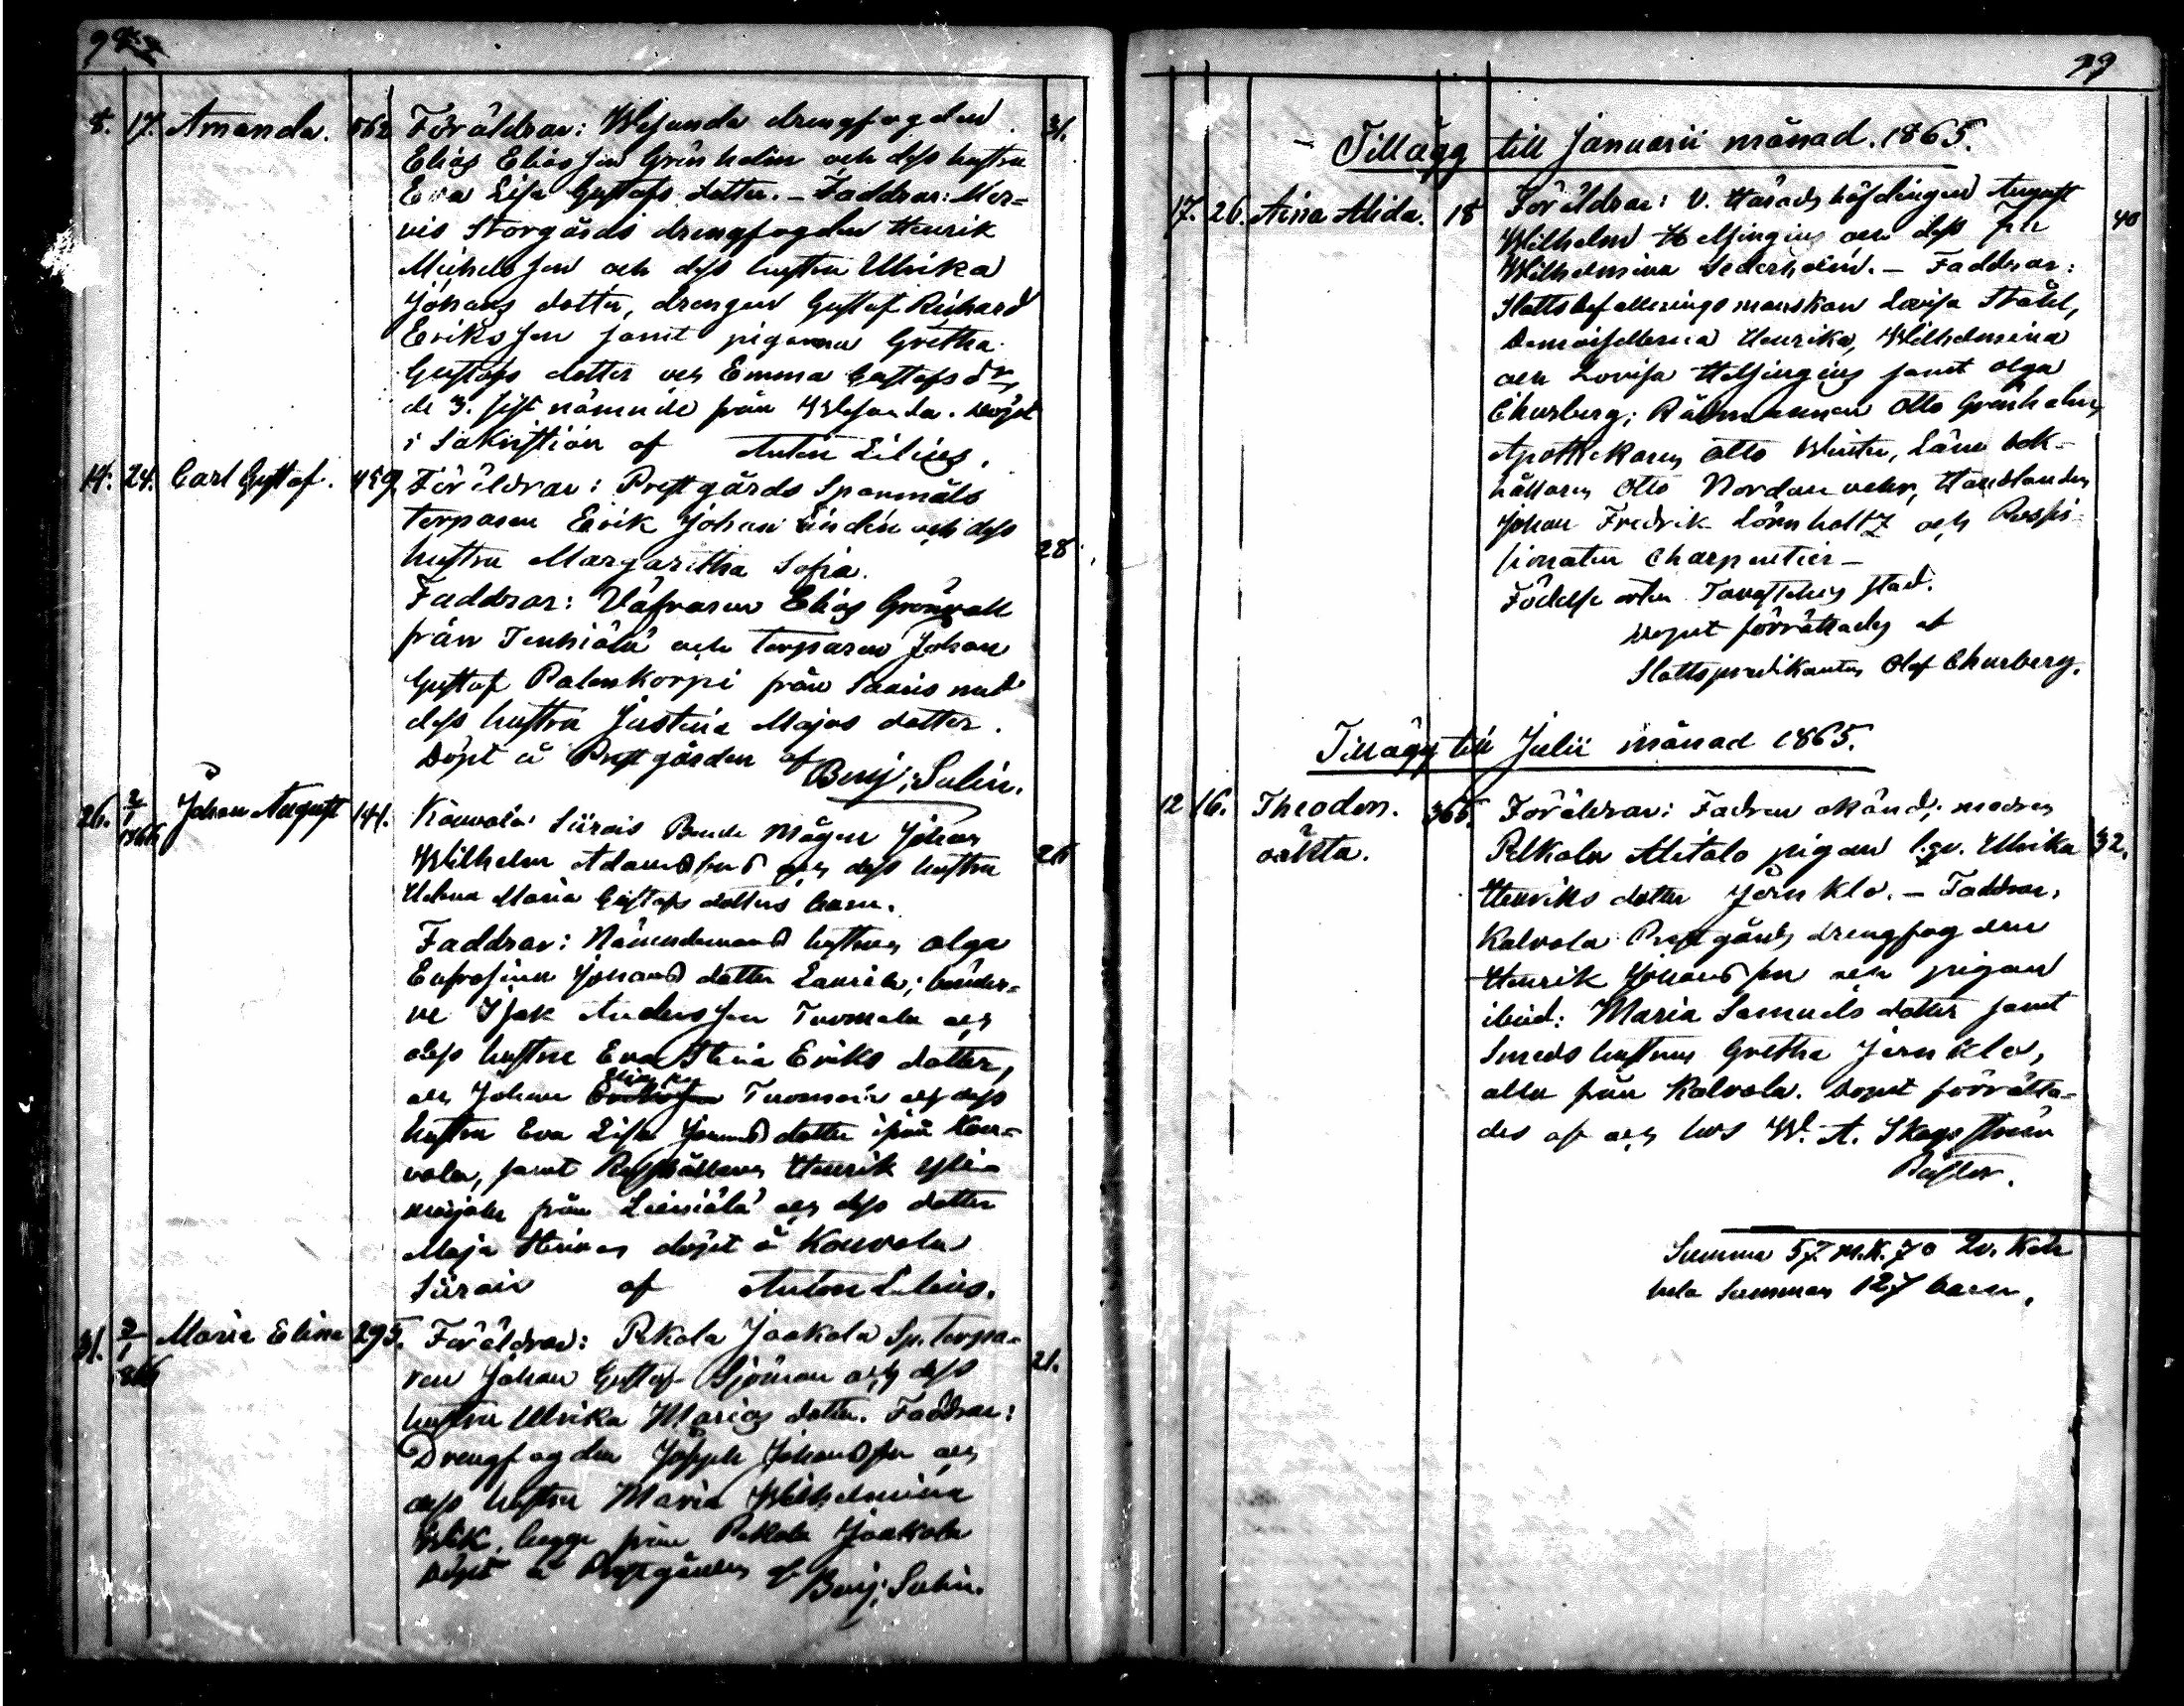 8. 17. Amanda. 562 Föräldrar: Wesunda drengfogden 31.
Elias Eliasson Grönholm och dess hustru
Eva Lisa Gustafs dotter. - Faddrar: Mer=
vis Storgårds drengfogden Henrik
Michelsson och dess hustru Ulrika
Johans dotter, drengen Gustaf Richard
Eriksson samt pigorna Gretha
Gustafs dotter och Emma Gustafs dr,
de 3. sist nämnde från Wesunda. Döpt
i Sakristian af Anton Lilius.
14. 24. Carl Gustaf. 459 Föräldrar: Prestgårds Spanmåls
torparen Erik Johan Lindén och dess
hustru Margaretha Sofia. 28
Faddrar: Väfvaren Elias Grönvall
från Tenhiälä och torparen Johan
Gustaf Palenkorpi från Saaris med
dess hustru Justina Majas dotter.
Döpt å Prestgården af
Benj: Salin.
26. 2/1 1866 Johan August 141. Kouvola Siirois Bonde mågen Johan
Wilhelm Adamsson och dess hustru 26
Helena Maria Gustafs dotters barn.
Faddrar: Nämndemans hustrun Olga
Eufrosina Johans dotter Laurila; bönder=
ne Isak Andersson Tuomola och
dess hustru Eva Stina Eriks dotter,
och Johan Tuomola och dess
hustru Eva Lisa Johans dotter ifrån Kou=
vola, samt Henrik Yli=
från och dess dotter
Maja Stina döpt å Kouvola
Siirois af Anton Lilius.
31. 3/1 866 Maria Elina 295. Föräldrar: Pekola Jaakola Sp. torpa=
ren Johan Gustaf Sjöman och dess 21.
hustru Ulrika Marias dotter. Faddrar:
Drengfogden Joseph Johansson och
dess hustru Maria Wilhelmina
Wik, begge från Pekola Jaakola
Döpt å Prestgården af
Benj: Salin.
99
- Tillägg till Januarii månad. 1865.
17. 26. Aina Alida. 18 Föräldrar: V. Häradshöfdingen August
Wilhelm Helsingius och dess fru 40
Wilhelmina Sederholm. - Faddrar:
Slottsbefallningsmanskan Lovisa Ståhl,
Demoisellerna Henrika, Wilhelmina
och Lovisa Helsingius samt Olga
Churberg; Rådmannen Otto Grönholm,
Apothekaren Otto Winter, Läne bok-
hållaren Otto Nordan Handlanden
Johan Fredrik Lörnholtz och
Charpentier -
Födelse orten Tavastehus stad.
Dopet förrättades af
Slottspredikanten Olof Churberg.
Tillägg till Julii månad 1865.
12 16. Theodor. 365. Föräldrar: Fadren okänd; modren
oäkta. Pelkola Alitalo pigan l.qv. Ulrika 32.
Henriks dotter Jernklo. - Faddrar:
Kalvola Prestgårds drengfogden
Henrik Johansson och pigan
ibid: Maria Samuels dotter samt
Smeds hustrun Gretha Jernklo,
alla från Kalvola. Dopet förrätta=
des af och hos W. A. Skogström
Pastor.
Summa 57 m.k. 70 qv. kön
hela Summan 127 barn.